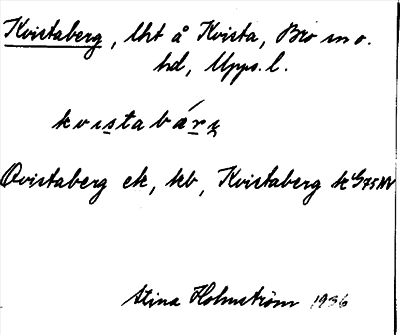 Kvistaberg, lht å Kvista, Bro sn o.
hd, Upps. l.
kvistabárɣ
Qvistaberg ek, kb, Kvistaberg k G75NV
Stina Holmström 1936